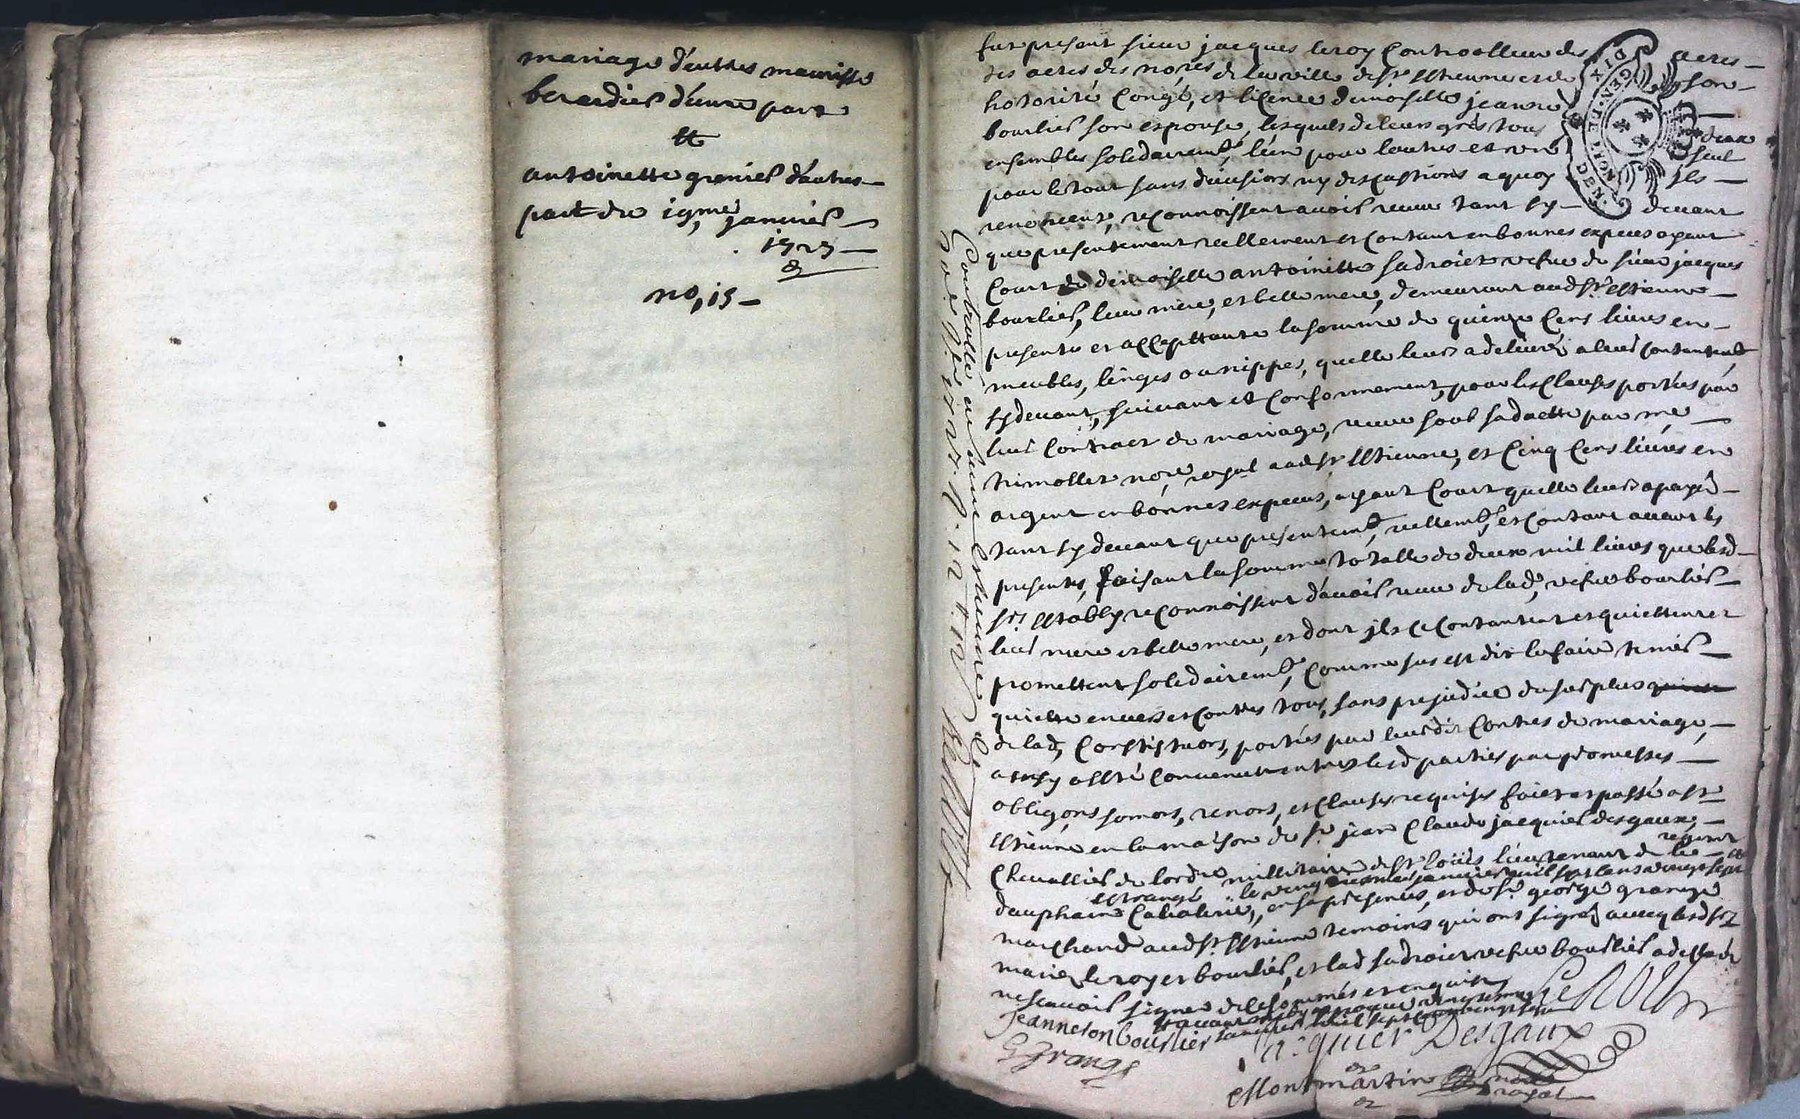 mariage d'entres maurisse
berardier d'une part
et
antoinette grenier d'autres
part du 19me janvier
1727
no, 15
fut present sieur jacques leroy Controolleur des actes
des actes des nores de la ville de st Estienne et de son
hotorité Congé, et licence demoiselle jeanne
bourlier son espouse, lesquels de leurs grés tous deux
ensembles solidairemt, l'un pour l'autres et un seul
pour le tout sans division ny discustions a quoy jls
renoncent, reconnoissent avoir receu tant sy devant
que presentement reellement et contant en bonnes expeces ayant
Court de demoiselle antoinette sadroict vefve de sieur jacques
bourlier, leur mere, et belle mere, demeurant aud st Estienne
presente et accepttante la somme de quinze Cens livres en
meubles, linges ou nippes, quelle leurs a delivré a leur contantemt
sy devant, suivant et conformement, pour les Clauses portées par
leur Contract de mariage, receu soub sa datte par me
trimollet nore royal aud st Estienne, et Cinq Cens livres en
argent en bonnes expeces, ayant Court quelle leurs a payé
tant sy devant que presentemt, reellemt, et contant avant les
presentes, faisant la somme totalle de deux mil livres que lesd
srs Establys reconnoissent d'avoir receu de lade vefve bourlier
leur mere et belle mere, et dont jls ce contantent et quiettent et
promettent solidairemt, comme sus est dit le faire tenir
quiette envers et contres tous, sans prejudice du surplus
de lade Constiston, portées par leurdit Contres de mariage,
ainsy a esté convenu entres lesd parties par promesses
obligons, somons, renons, et Clauses requises faict et passé a st
Estienne en la maison de sr jean Claude jacquier desgaux,
Chevallier de l'ordre millitaire de st loüis lieutenant de regimt
estrangé le vingt janvier mil sept cens vingt sept
dauphain Cavalerie, en sa presences, et de sr george grange
marchand aud st Estienne temoins qui ont signé avecq lesd srs
mariez leroy et bourlier, et lad sadroict vefve bourlier a declaré
ne scavoir signer de ce sommés et enquis
Jeanneton bourlier
Leroy
Jacquier Desgaux
G Grange
Montmartin
nore royal
Controollé a sainct estienne le
GEN. DE LION
DIX DEN.